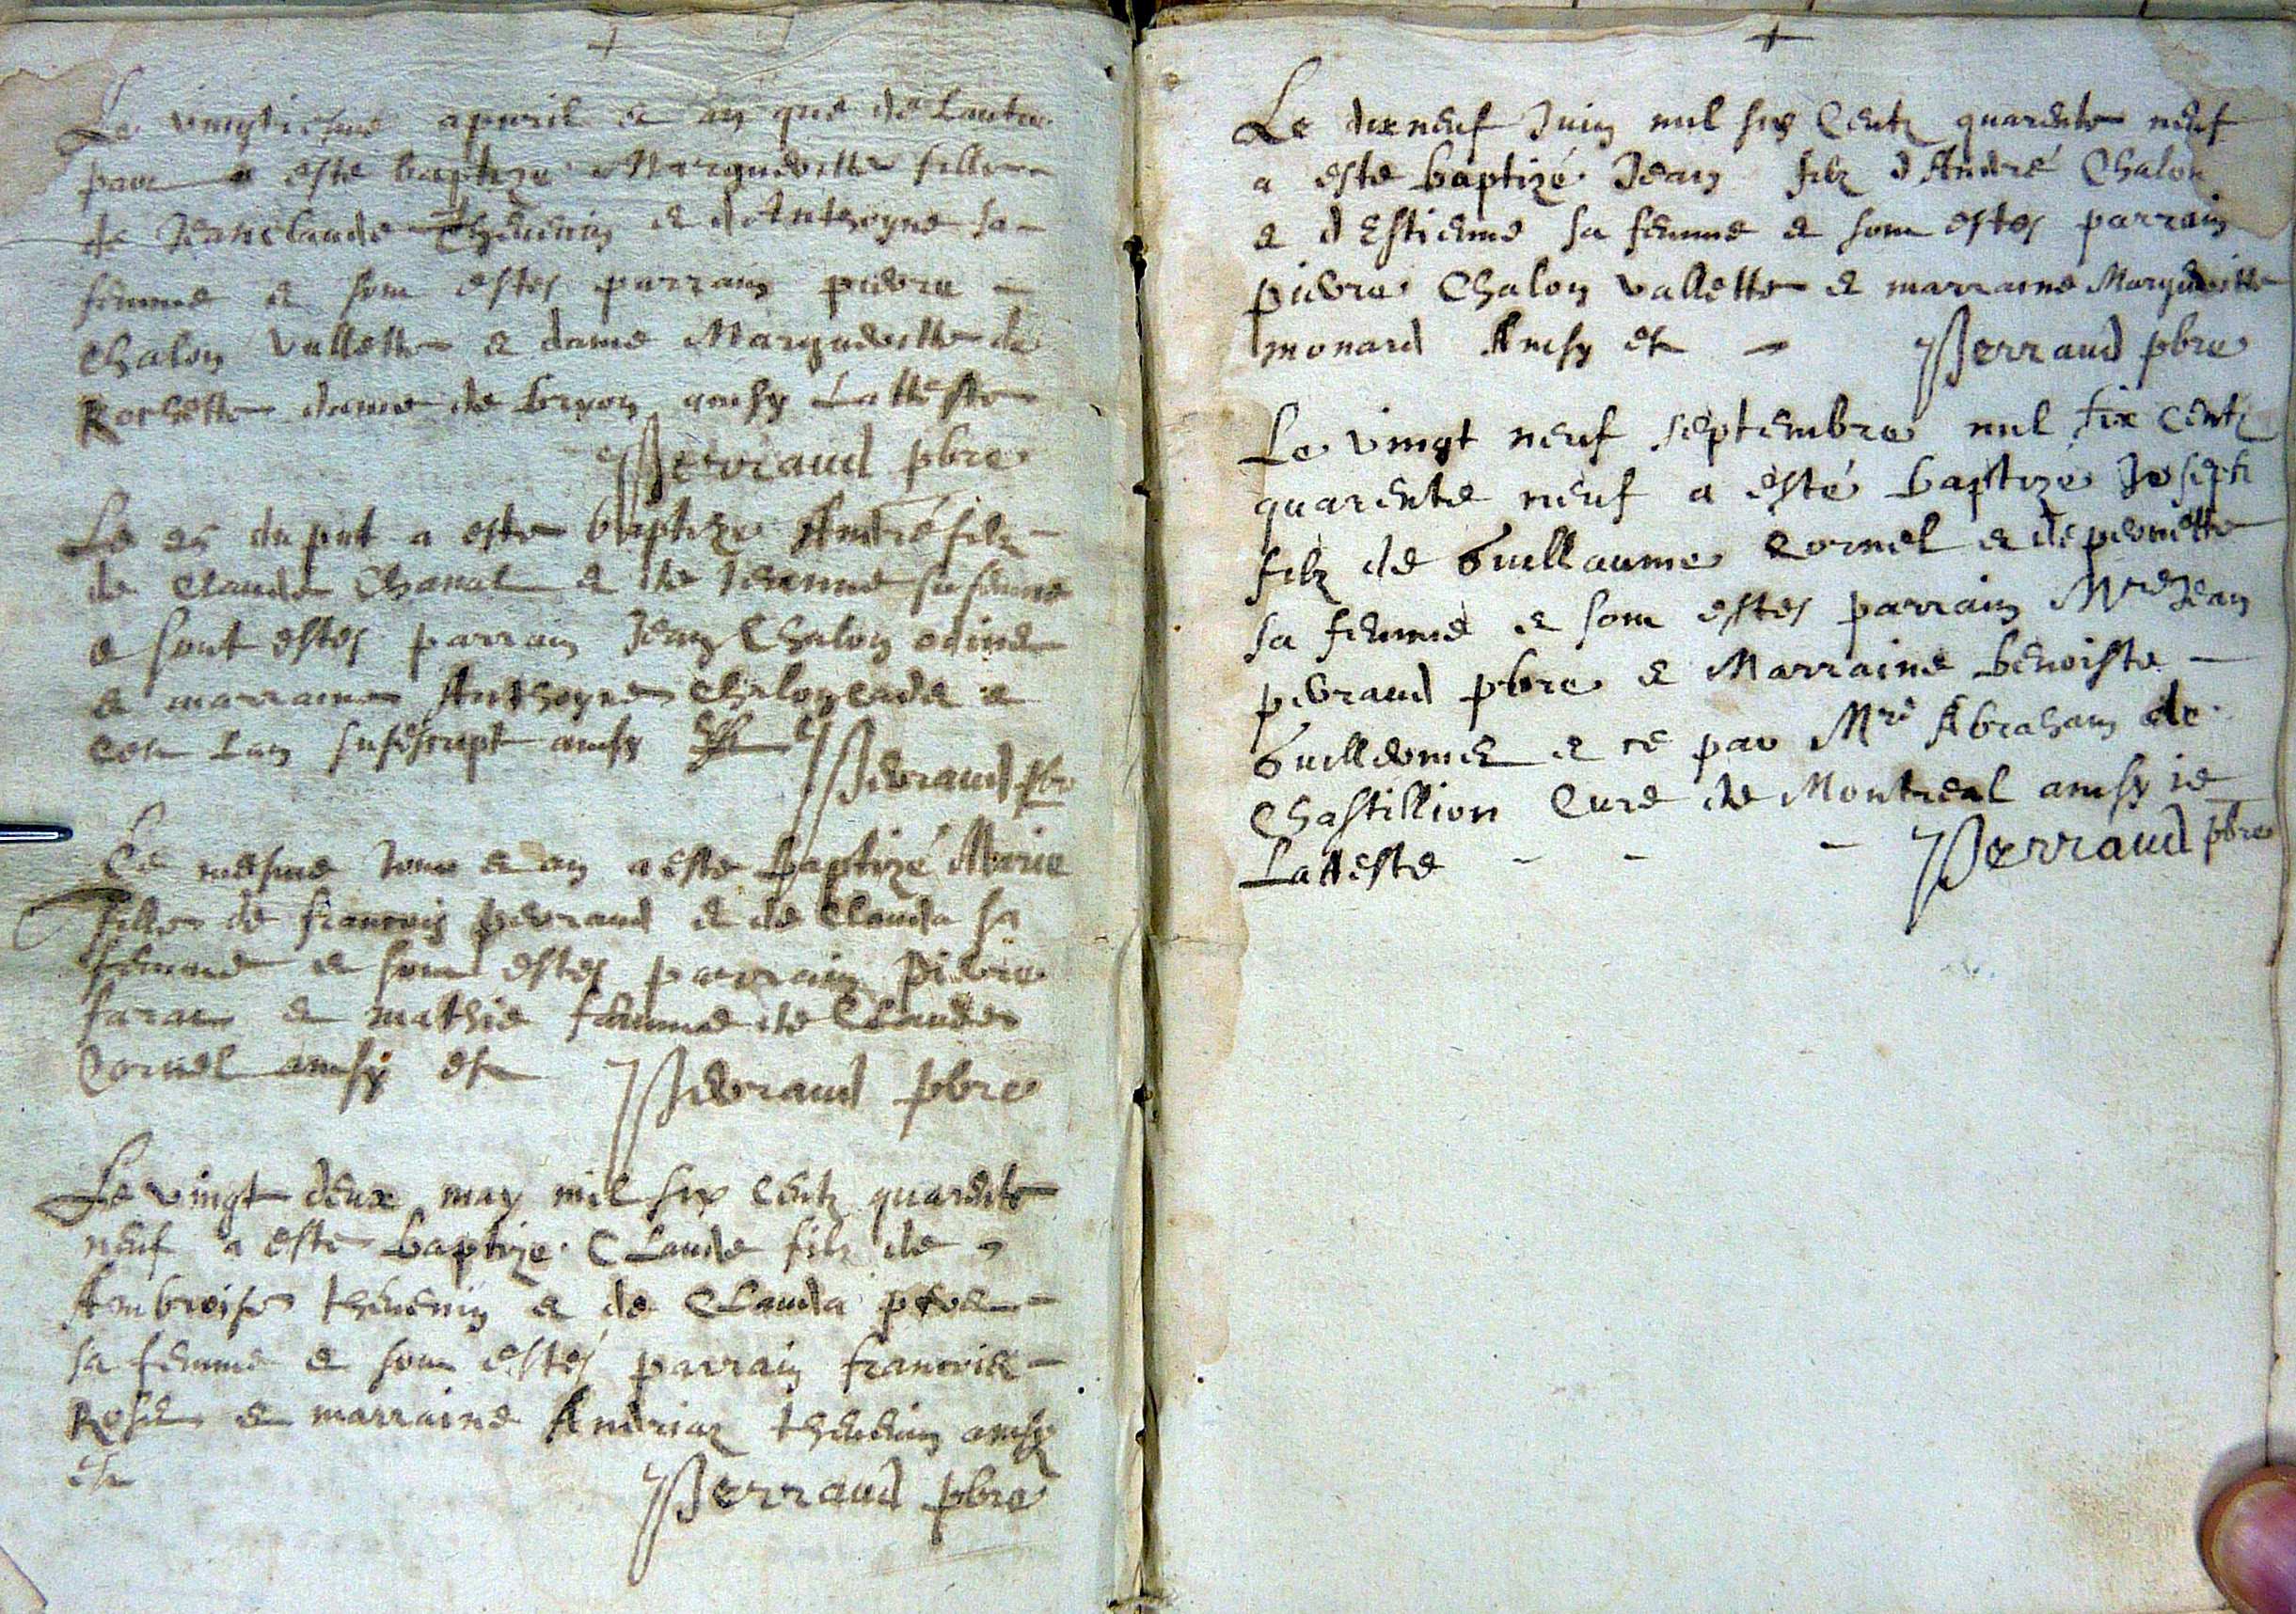 Le vingtiesme apvril & an que de lautre
part a esté baptizé Margueritte fille
de Jean claude Thevenin & d Anthoyne sa
femme & sont estes parrain pierre
Chalon Vallette & dame Margueritte de
Rochette dame de ainsy Latteste
Perraud pbre
Le 25 du pnt a este baptize André filz
de Claude Chanal & de Jeanne sa femme
& sont estes parrain Jean Chalon
& marraine Anthoyne Chalon &
lan susescript ainsy
Perraud pbre
Le mesme Jour & an a este baptizé Marie
fille de francois perraud & de Clauda sa
femme & sont estes parrain Pierre
& mathie femme de Claude
Cornel ainsy est Perraud pbre
Le vingt deux may mil six Centz quarente
neuf a este baptize Claude filz de
Ambroise thevenin & de Clauda
sa femme & sont estés parrain francois
& marraine Andriaz thevenin ainsy
est Perraud pbre
Le dixneuf Juin mil six Centz quarente neuf
a este baptizé Jean filz d André Chalon
& d Estienne sa femme & sont estes parrain
pierre Chalon vallette & marraine Margueritte
monard Ainsy est Perraud pbre
Le vingt neuf septembre mil six Centz
quarente neuf a esté baptizé Joseph
filz de Guillaume Cornel & de pernette
sa femme & sont estes parrain Mre Jean
perraud pbre & Marraine benoiste
& ce par Mre Abraham de
Chastillion Curé de Montreal ainsy ie
Latteste Perraud pbre